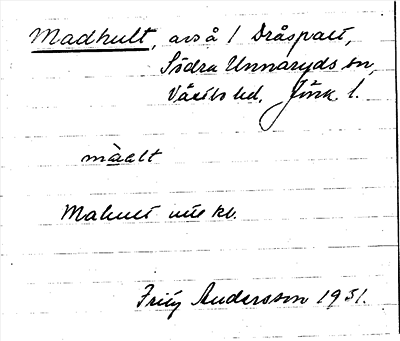 Madhult, avs å 1 Dråspatt,
Södra Unnaryds sn,
Västbo hd. Jönk. l.
màalt
Mahult uttkl.
Frity Andersson 1931.